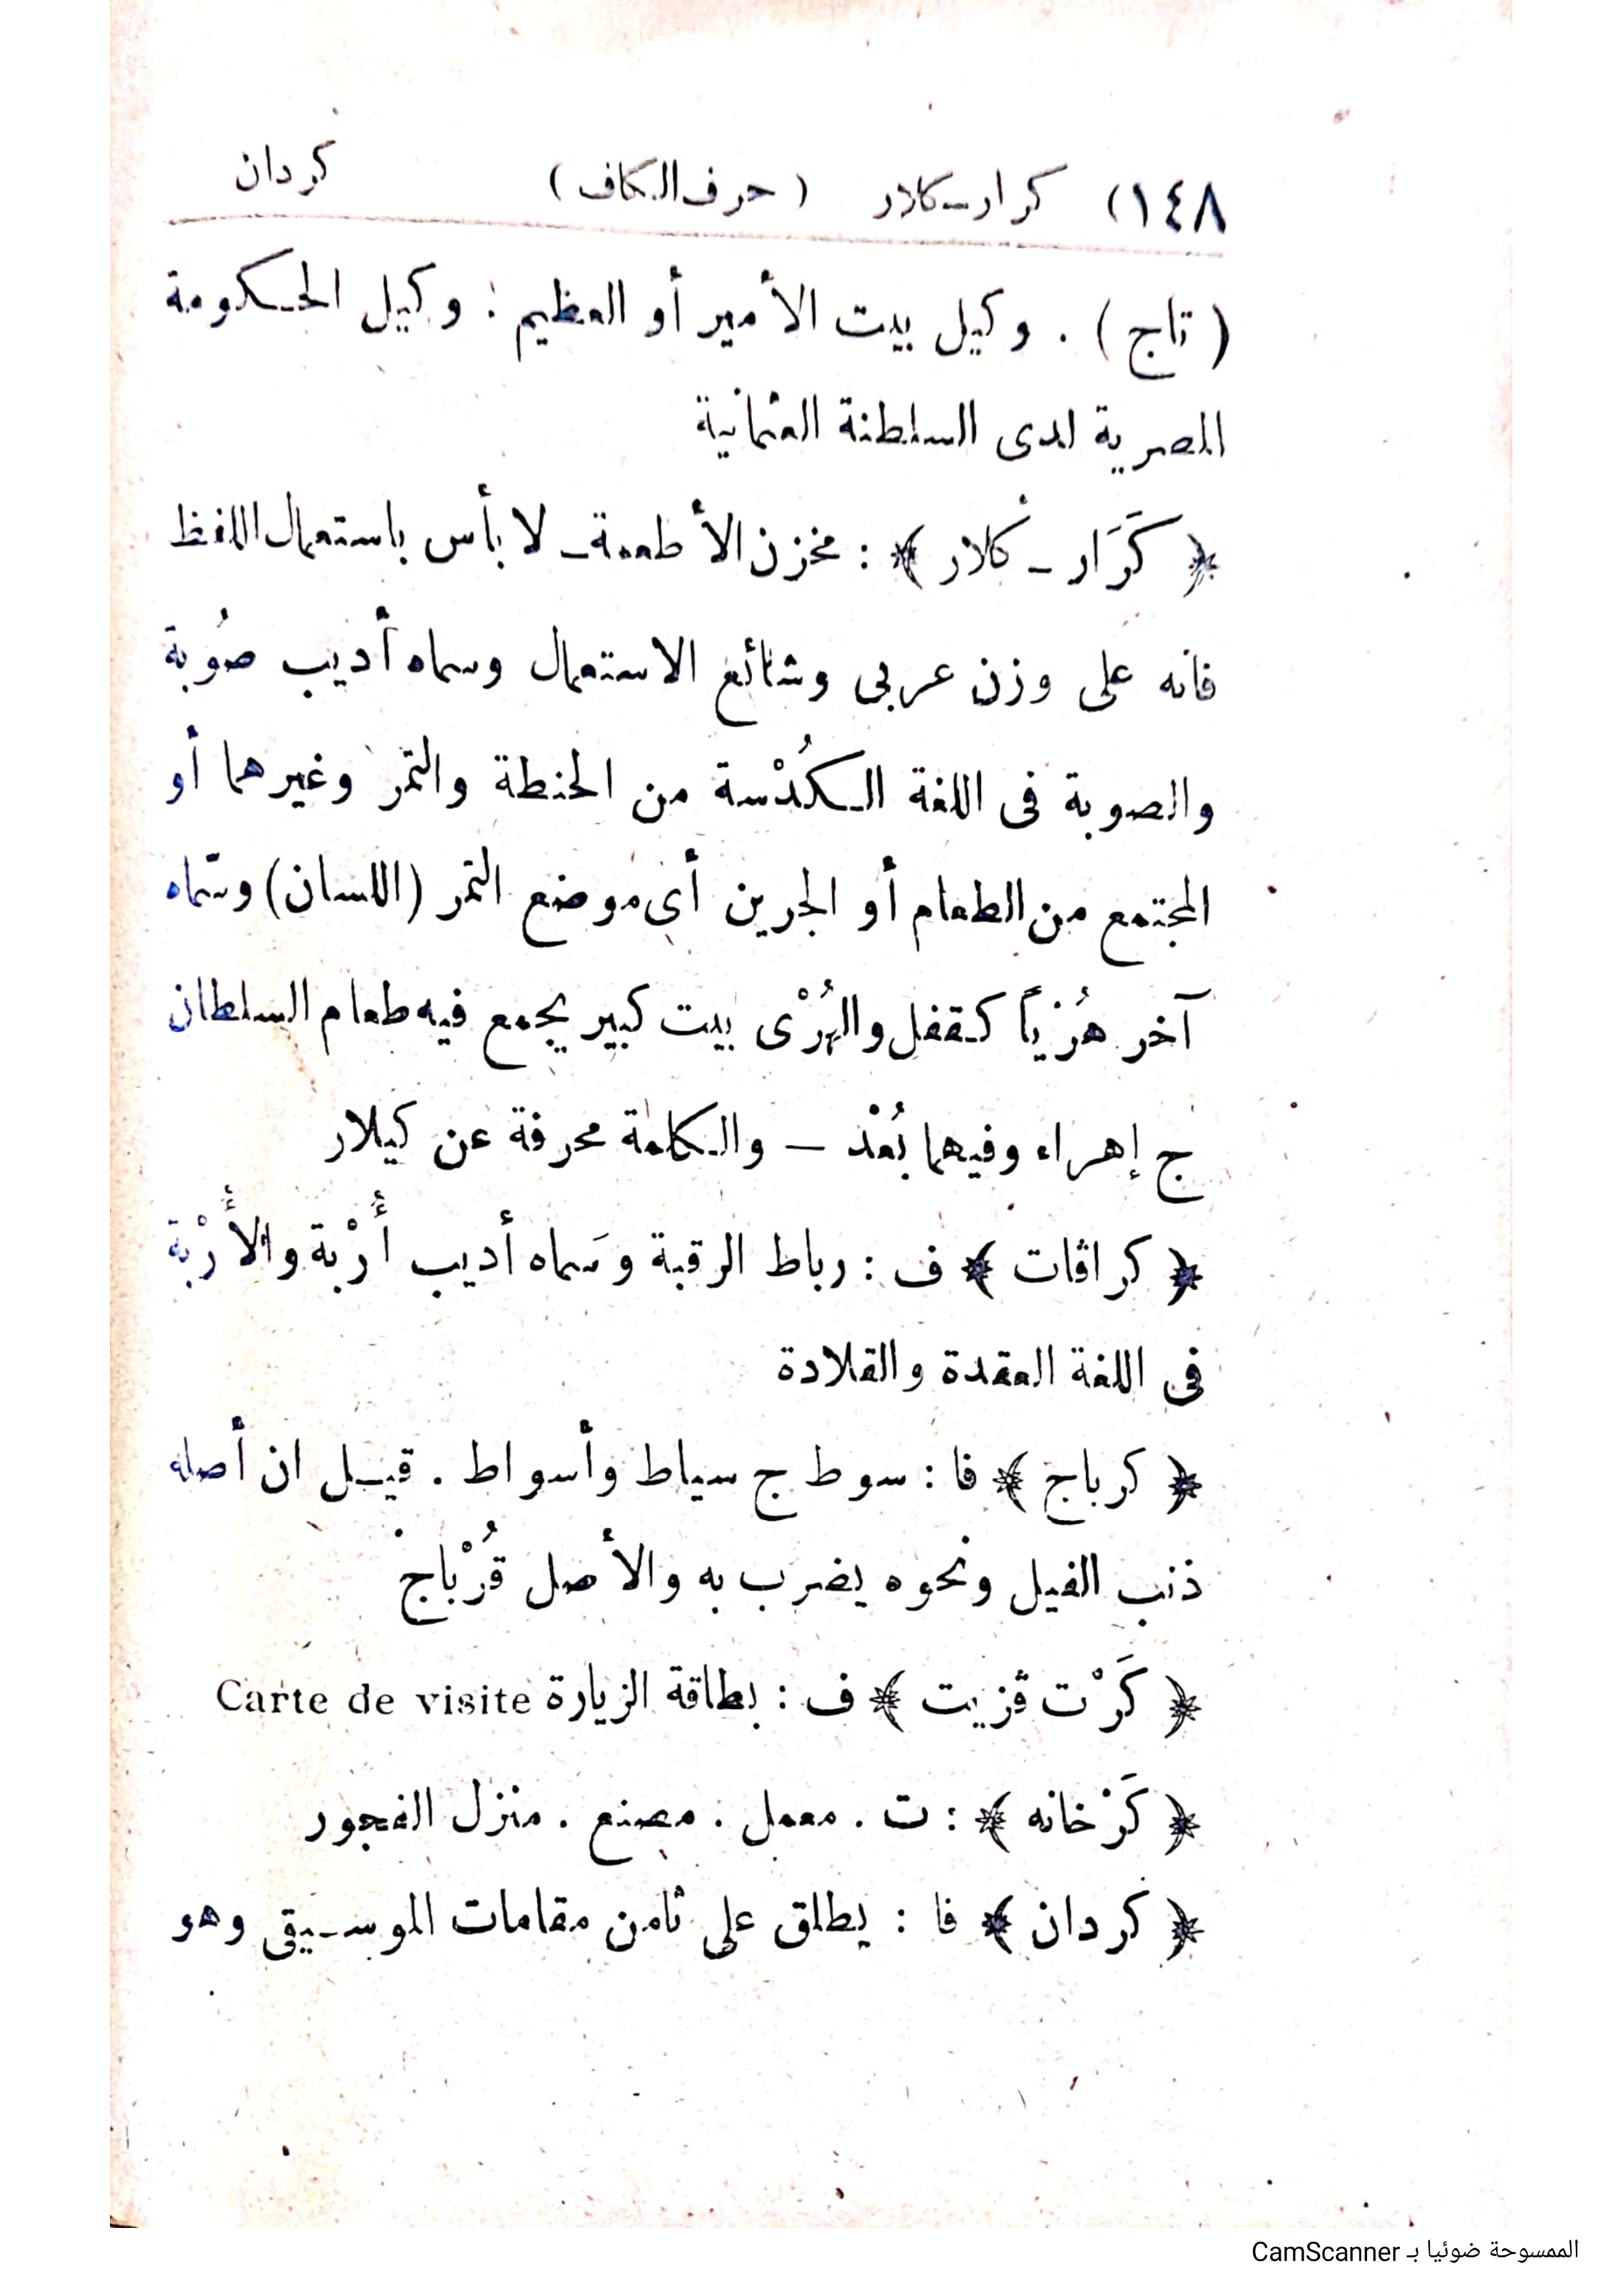 ١٤٨) كرار-كلار (حرف الكاف) كردان
(تاج) . وكيل بيت الأمير أو العظيم : وكيل الحكومة
المصرية لدى السلطنة العثمانية
﴿ كَرَار - كلار ﴾ : مخزن الأطعمة - لا بأس باستعمال اللفظ
فانه على وزن عربى وشائع الاستعمال وسماه أديب صُوبة
والصوبة فى اللغة الكُدْسة من الحنطة والتمر وغيرهما أو
المجتمع من الطعام أو الجرين أى موضع التمر (اللسان) وسمّاه
آخر هُرْياً كقفل والهُرْى بيت كبير يجمع فيه طعام السلطان
ج إهراء وفيهما بُعْد — والكلمة محرفة عن كيلار
﴿ كراڤات ﴾ ف : رباط الرقبة وسَماه أديب أُرْبة والأُرْبة
فى اللغة العقدة والقلادة
﴿ كرباج ﴾ فا : سوط ج سياط وأسواط . قيل ان أصله
ذنب الفيل ونحوه يضرب به والأصل قُرْباج
﴿ كَرْت ڤزيت ﴾ ف : بطاقة الزيارة Carte de visite
﴿ كَرْخانه ﴾ : ت . معمل . مصنع . منزل الفجور
﴿ كردان ﴾ فا : يطلق على ثامن مقامات الموسيقى وهو
الممسوحة ضوئيا بـ CamScanner